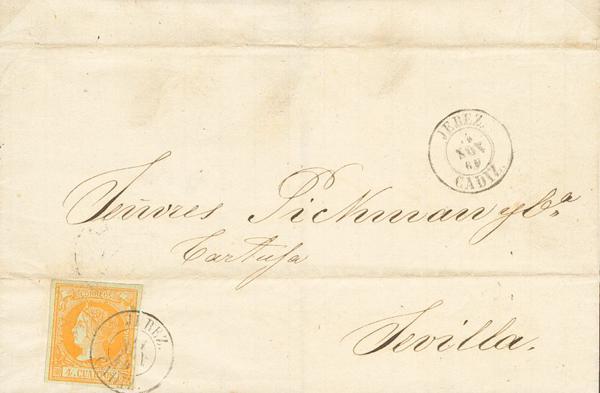 JEREZ.
4
NOV
60
CADIZ.
Señores Pickman y Cª
Cartuja
Sevilla.
CORREOS
4 CUART
JEREZ.
NOV
CADIZ